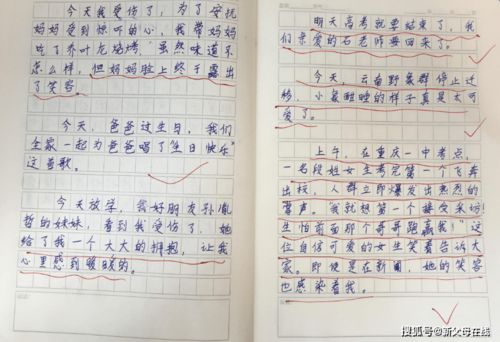 今天我受伤了，为了安抚
妈妈受到惊吓的心，我带妈妈
吃了乔叶庖烧烤，虽然味道不
怎么样，但妈妈脸上终于露出
了笑容。
今天，爸爸过生日，我们
全家一起为爸爸唱了“生日快乐”
这首歌。
今天放学，我好朋友孙胤
哲的妹妹，看到我受伤了，她
给了我一个大大的拥抱，让我
心里感到暖暖的。
明天高考就要结束了，我
们亲爱的石老师要回来了。
今天，云南野象群停止迁
移，小象酣睡的样子真是太可
爱了。
上午，在重庆一中考点，
一名段姓女生考完第一个飞奔
出校，人群立即爆发出热烈的
掌声。“我就想第一个接受采访！
生怕前面那个哥哥跑赢我！”这
位自信可爱的女生笑着告诉大
家。即使是在新闻，她的笑容
也感染着我。
搜狐号@新父母在线